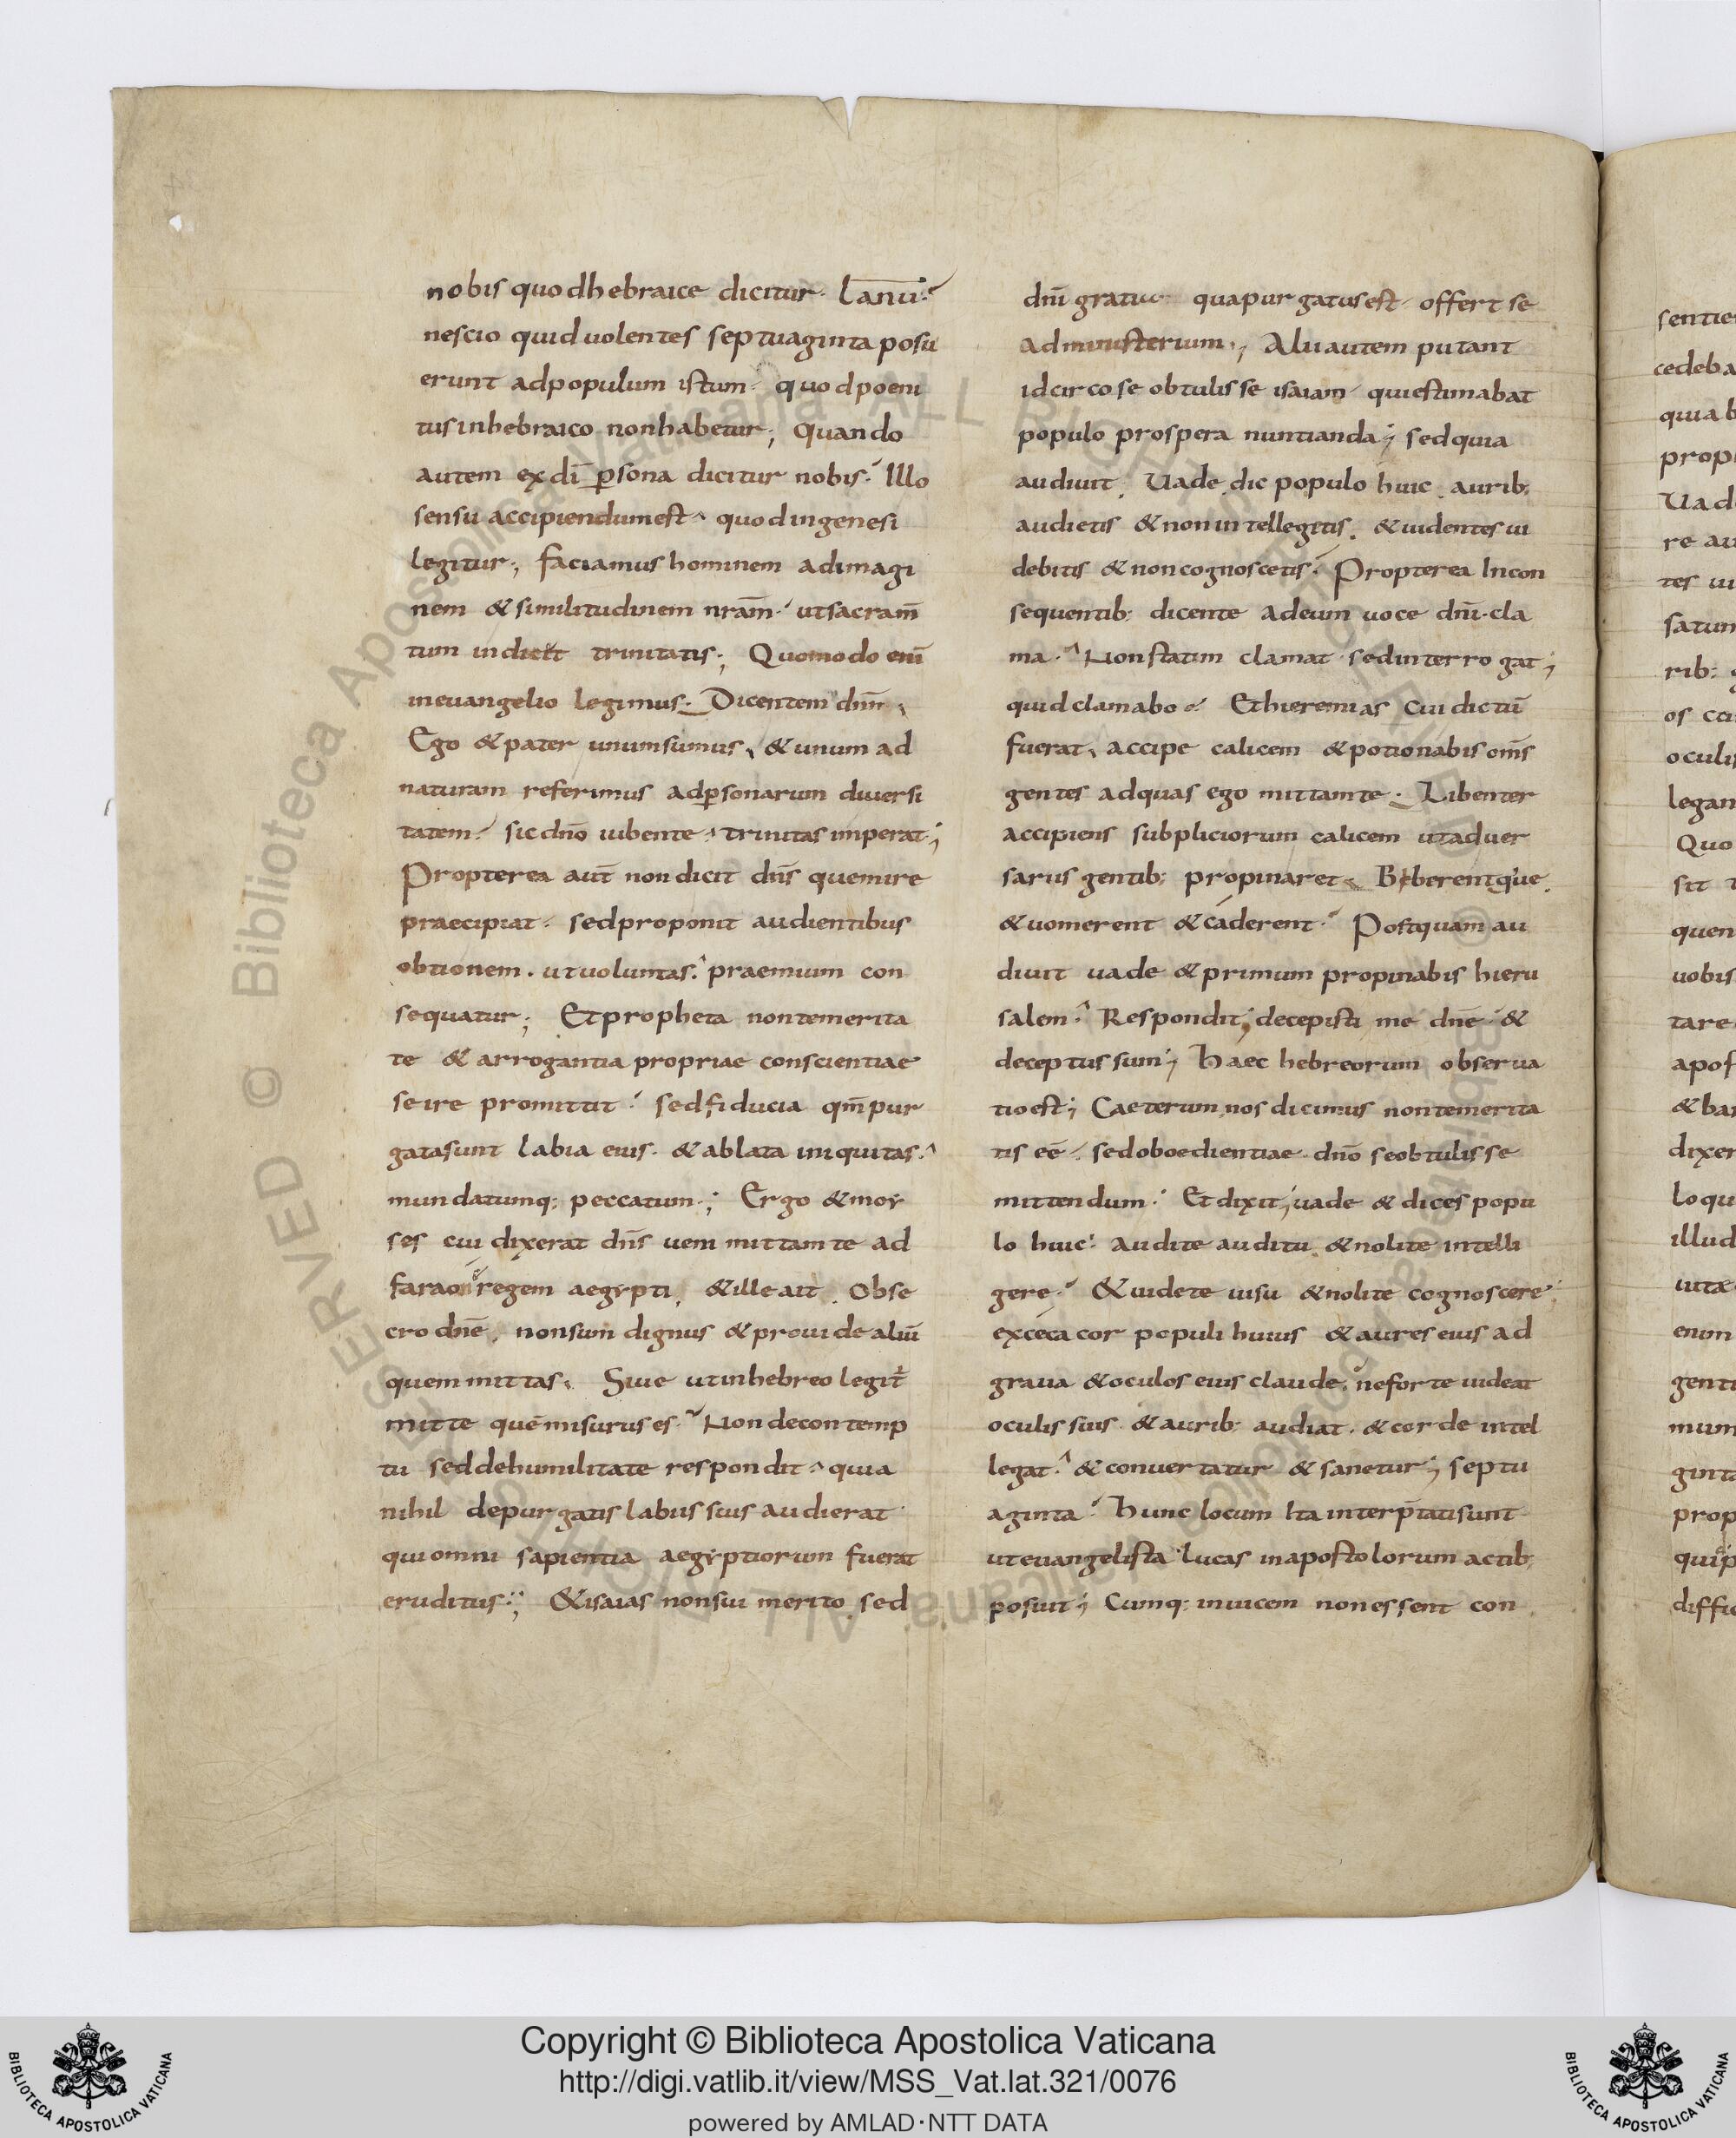 nobis quod hebraice dicitur. lanu:
nescio quid uolentes septuaginta posu
erunt ad populum istum. quod poeni
tus in hebraico non habetur; Quando
autem ex dī p̲sona dicitur nobis. Illo
sensu accipiendum est. quod in genesi
legitur; faciamus hominem ad imagi
nem & similitudinem nrām. ut sacram̄
tum indicet trinitatis; Quomodo enī
in euangelio legimus. Dicentem dnm̄,
Ego & pater unum sumus, & unum ad
naturam referimus ad p̲sonarum diuersi
tatem. sic dnō iubente. trinitas imperat;
Propterea aut̄ non dicit dn̄s quem ire
praecipiat. sed proponit audientibus
obtionem. ut uoluntas. praemium con
sequatur; Et propheta non temerita
te & arrogantia propriae conscientiae
se ire promittit. sed fiducia qm̄ pur
gata sunt labia eius. & ablata iniquitas.
mundatumq; peccatum.; Ergo & moy
ses cui dixerat dn̄s ueni mittam te ad
faraonē regem aegypti, & ille ait. Obse
cro dnē, non sum dignus & prouide aliū
quem mittas, Siue ut in hebreo legit̄
mitte quē misurus es. Non de contemp
tu sed de humilitate respondit. quia
nihil de purgatis labiis suis audierat
qui omni sapientia aegyptiorum fuerat
eruditus.; & isaias non sui merito. sed
dnī gratia qua purgatus est. offert se
ad ministerium; Alii autem putant
idcirco se obtulisse isaiam. qui estimabat
populo prospera nuntianda; sed quia
audiuit. Uade dic populo huic. aurib;
audietis & non intellegitis. & uidentes ui
debitis & non cognoscetis. Propterea In con
sequentib; dicente ad eum uoce dnī. cla
ma. Non statim clamat. sed interrogat;
quid clamabo. Et hieremias cui dictū
fuerat, accipe calicem & potionabis om̄s
gentes ad quas ego mittam te. Libenter
accipiens subpliciorum calicem ut aduer
sariis gentib; propinaret. Biberentque.
& uomerent & caderent. Postquam au
diuit uade & primum propinabis hieru
salem. Respondit; decepisti me dnē. &
deceptus sum; Haec hebreorum obserua
tio est; Caeterum nos dicimus non temerita
tis eē. sed oboedientiae. dnō se obtulisse
mittendum. Et dixit; uade & dices popu
lo huic. Audite auditu & nolite intelli
gere. & uidete uisu & nolite cognoscere.
exceca cor populi huius & aures eius ad
graua & oculos eius claude; ne forte uideat
oculis suis & aurib; audiat. & corde intel
legat. & conuertatur & sanetur; septu
aginta. Hunc locum Ita interp̄tati sunt
ut euangelista lucas in apostolorum actib;
posuit; Cumq; inuicem non essent con
sentie
cedeba
quia b
prop
Uad
re au
tes ui
satum
rib;
os
oculis
legan
Quo
sit
quen
uobis
tare
apos
& bar
dixer
loqu
illud
uita
enim
genti
mum
ginta
prop
diffic
Copyright © Biblioteca Apostolica Vaticana
http://digi.vatlib.it/view/MSS_Vat.lat.321/0076
powered by AMLAD·NTT DATA
BIBLIOTECA APOSTOLICA VATICANA
BIBLIOTECA APOSTOLICA VATICANA